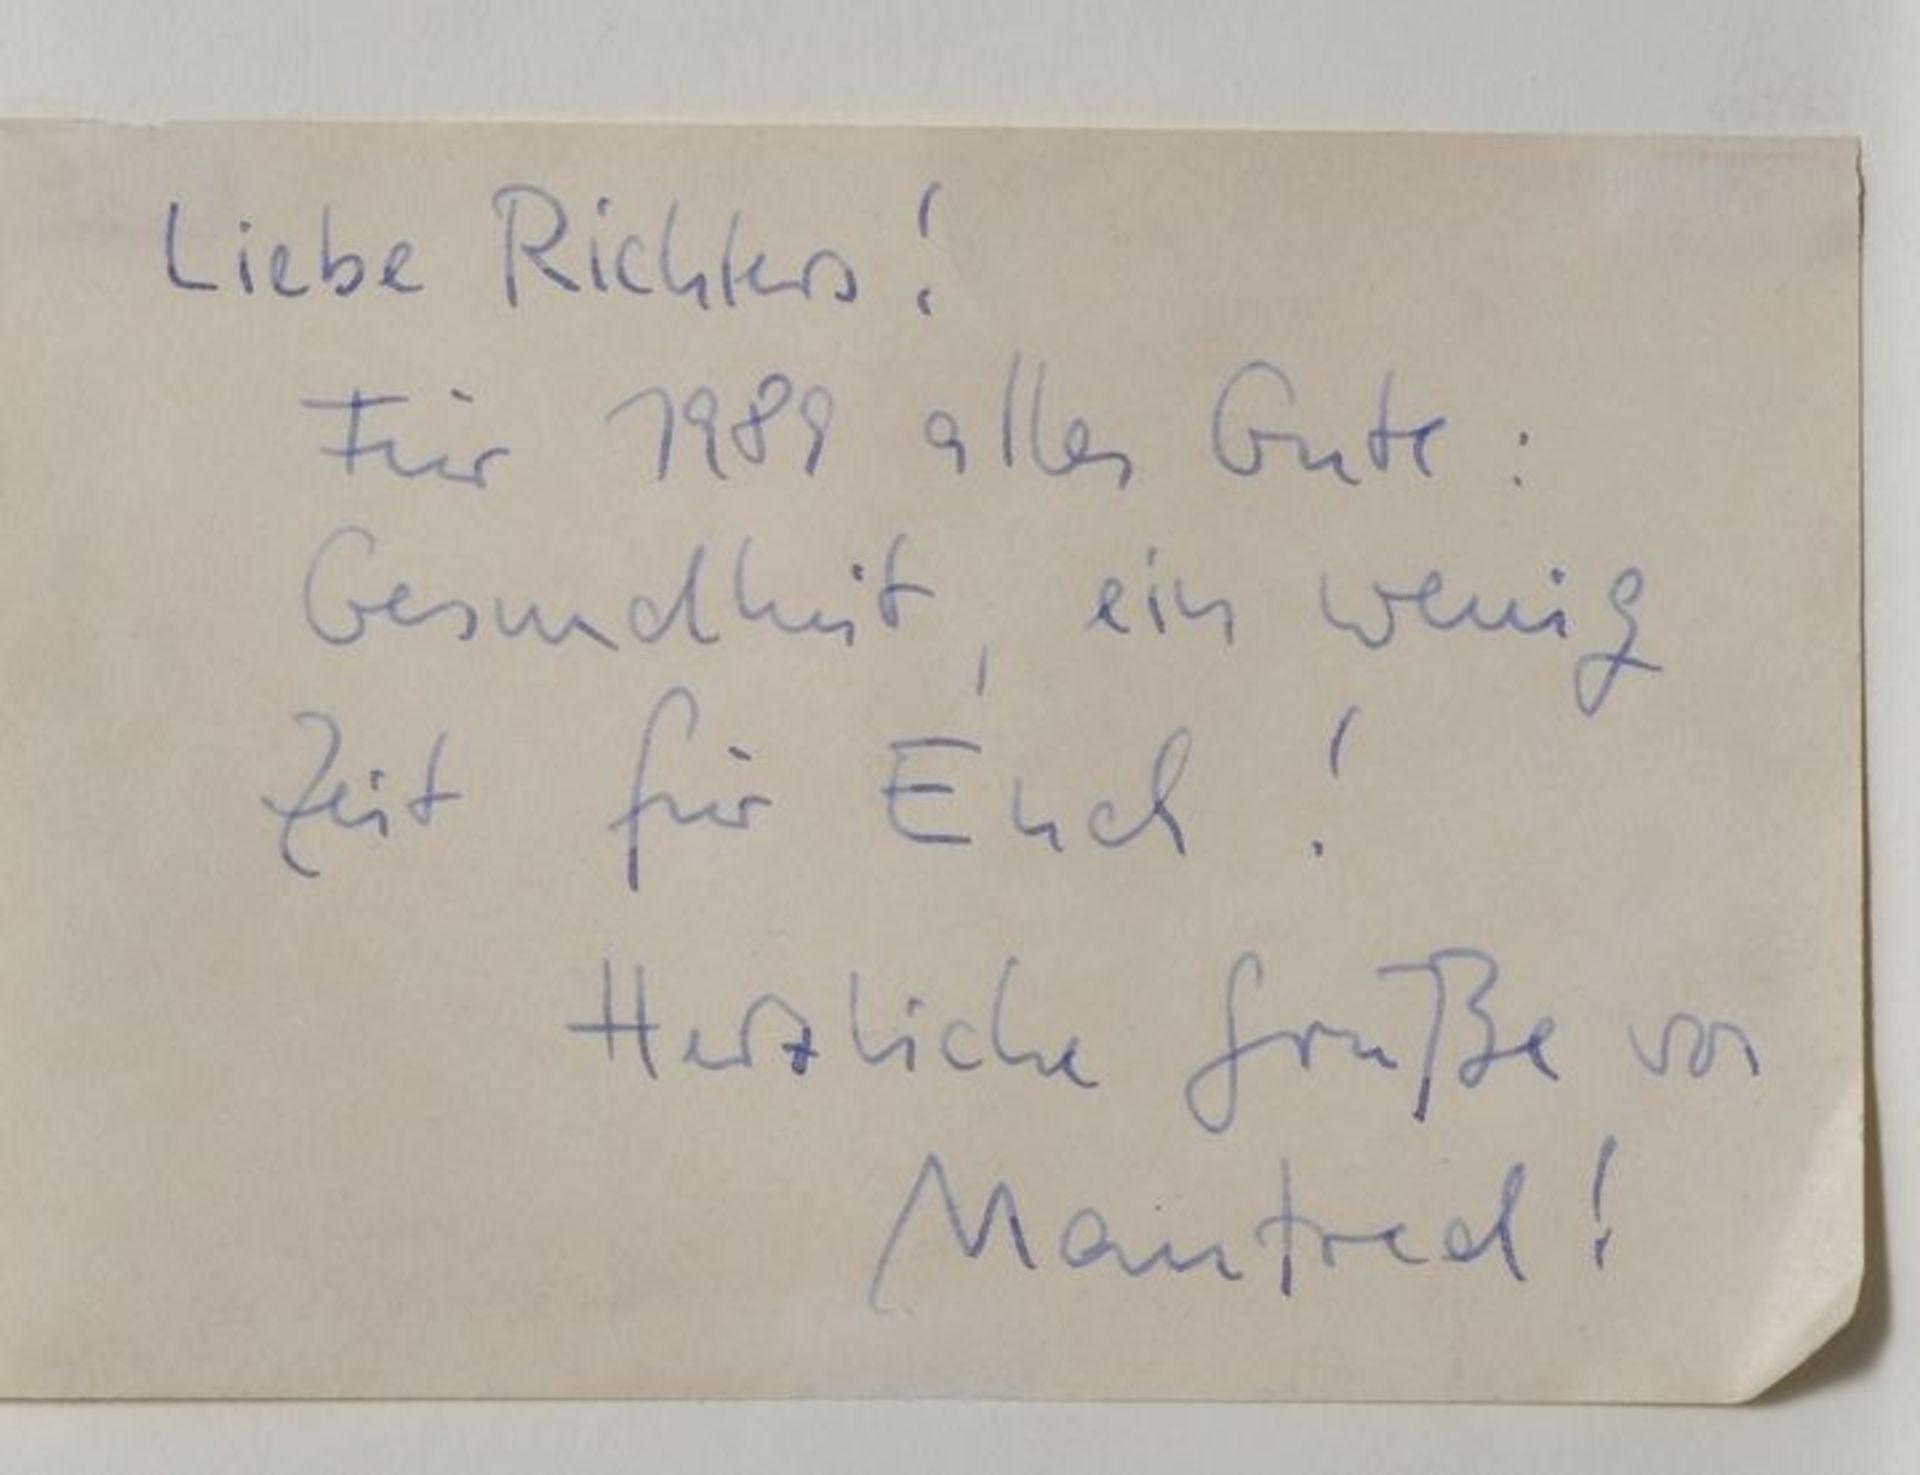 Liebe Richters!
Für 1989 alles Gute:
Gesundheit, ein wenig
Zeit für Euch!
Herzliche Grüße von
Manfred!